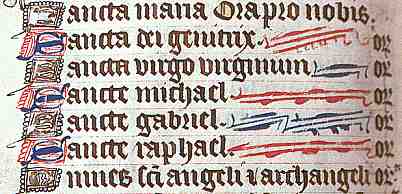 Sancta maria Ora pro nobis.
Sancta dei genitrix. or
Sancta virgo virginum or
Sancte michael. or
Sancte gabriel. or
Sancte raphael. or
Omnes sc̃i angeli ⁊ archangeli or